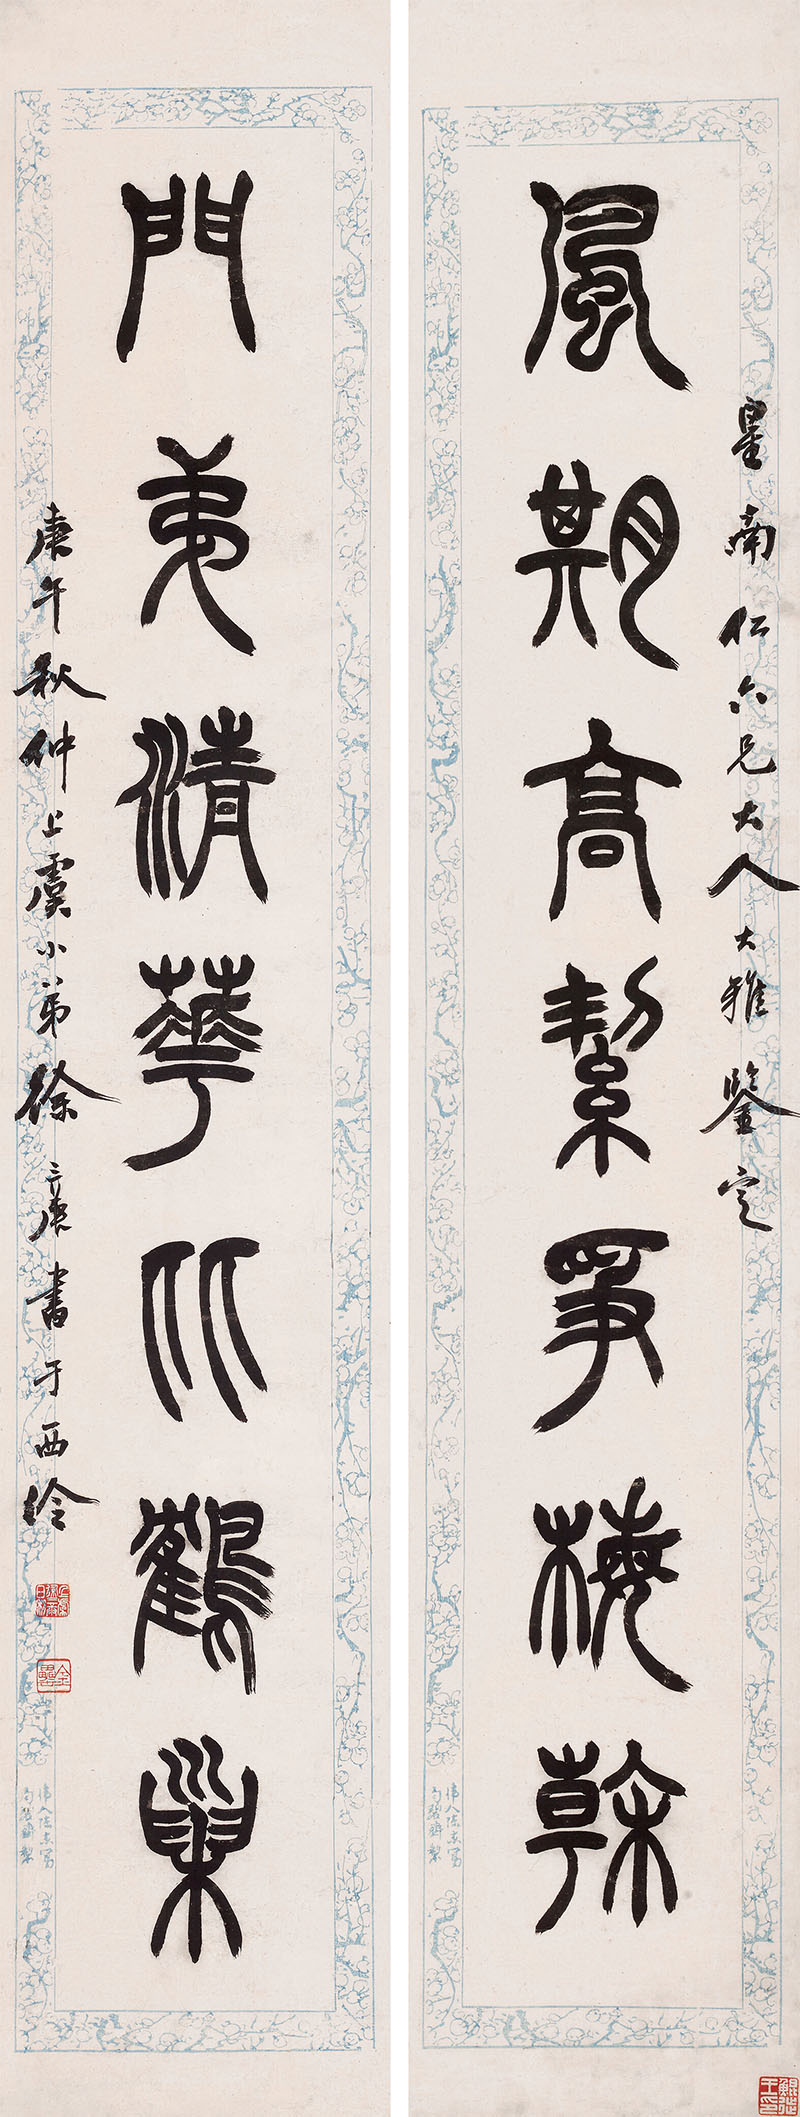 星南仁六兄大人大雅鉴定
風期高絜爭梅榦
門弟清華比鶴巢
庚午秋仲上虞小弟徐三庚書于西泠